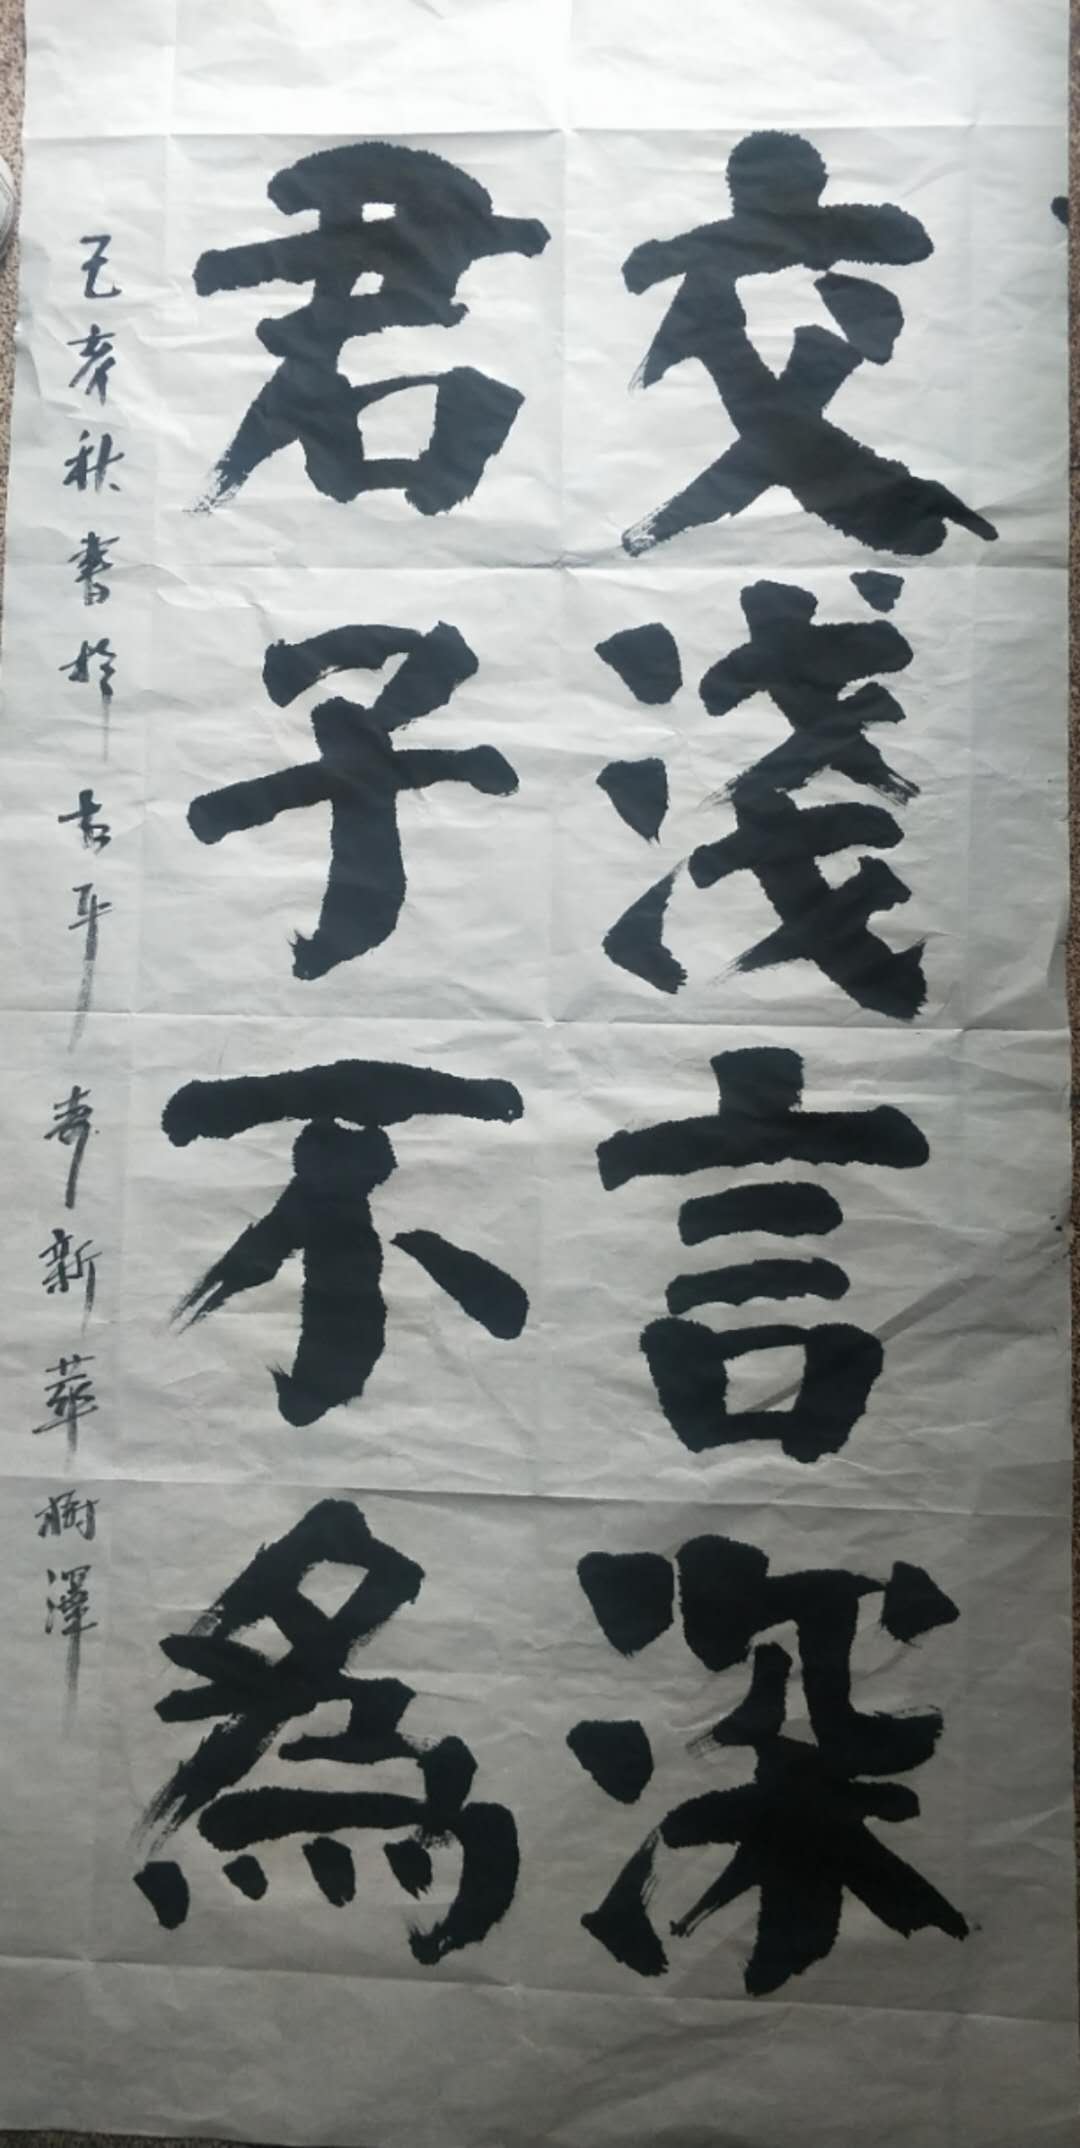 交淺言深
君子不為
己亥秋書於古平壽新華樹澤